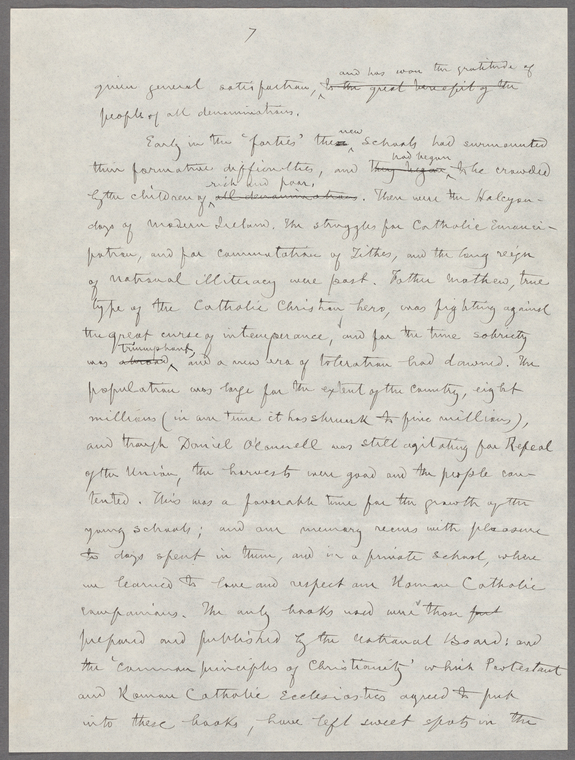 7
and has won the gratitude of
given general satisfaction, to the great benefit of the
people of all denominations.
new
Early in the "forties" these schools had surmounted
had begun
their formative difficulties, and they began to be crowded
rich and poor,
by the children of all denominations. These were the Halcyon-
days of modern Ireland. The struggles for Catholic Emanci-
pation, and for commutation of Tithes, and the long reign
of national illiteracy were past. Father Mathew, true
type of the Catholic Christian hero, was fighting against
the great curse of intemperance, and for the time sobriety
triumphant,
was abroad, and a new era of toleration had dawned. The
population was large for the extent of the country, eight
millions (in our time it has shrunk to five millions),
and though Daniel O'Connell was still agitating for Repeal
of the Union, the harvests were good and the people con-
tented. This was a favorable time for the growth of the
young schools; and our memory recurs with pleasure
to days spent in them, and in a private school, where
we learned to love and respect our Roman Catholic
companions. The only books used were those
prepared and published by the National Board: and
the 'common principles of Christianity' which Protestant
and Roman Catholic Ecclesiastics agreed to put
into these books, have left sweet spots in the